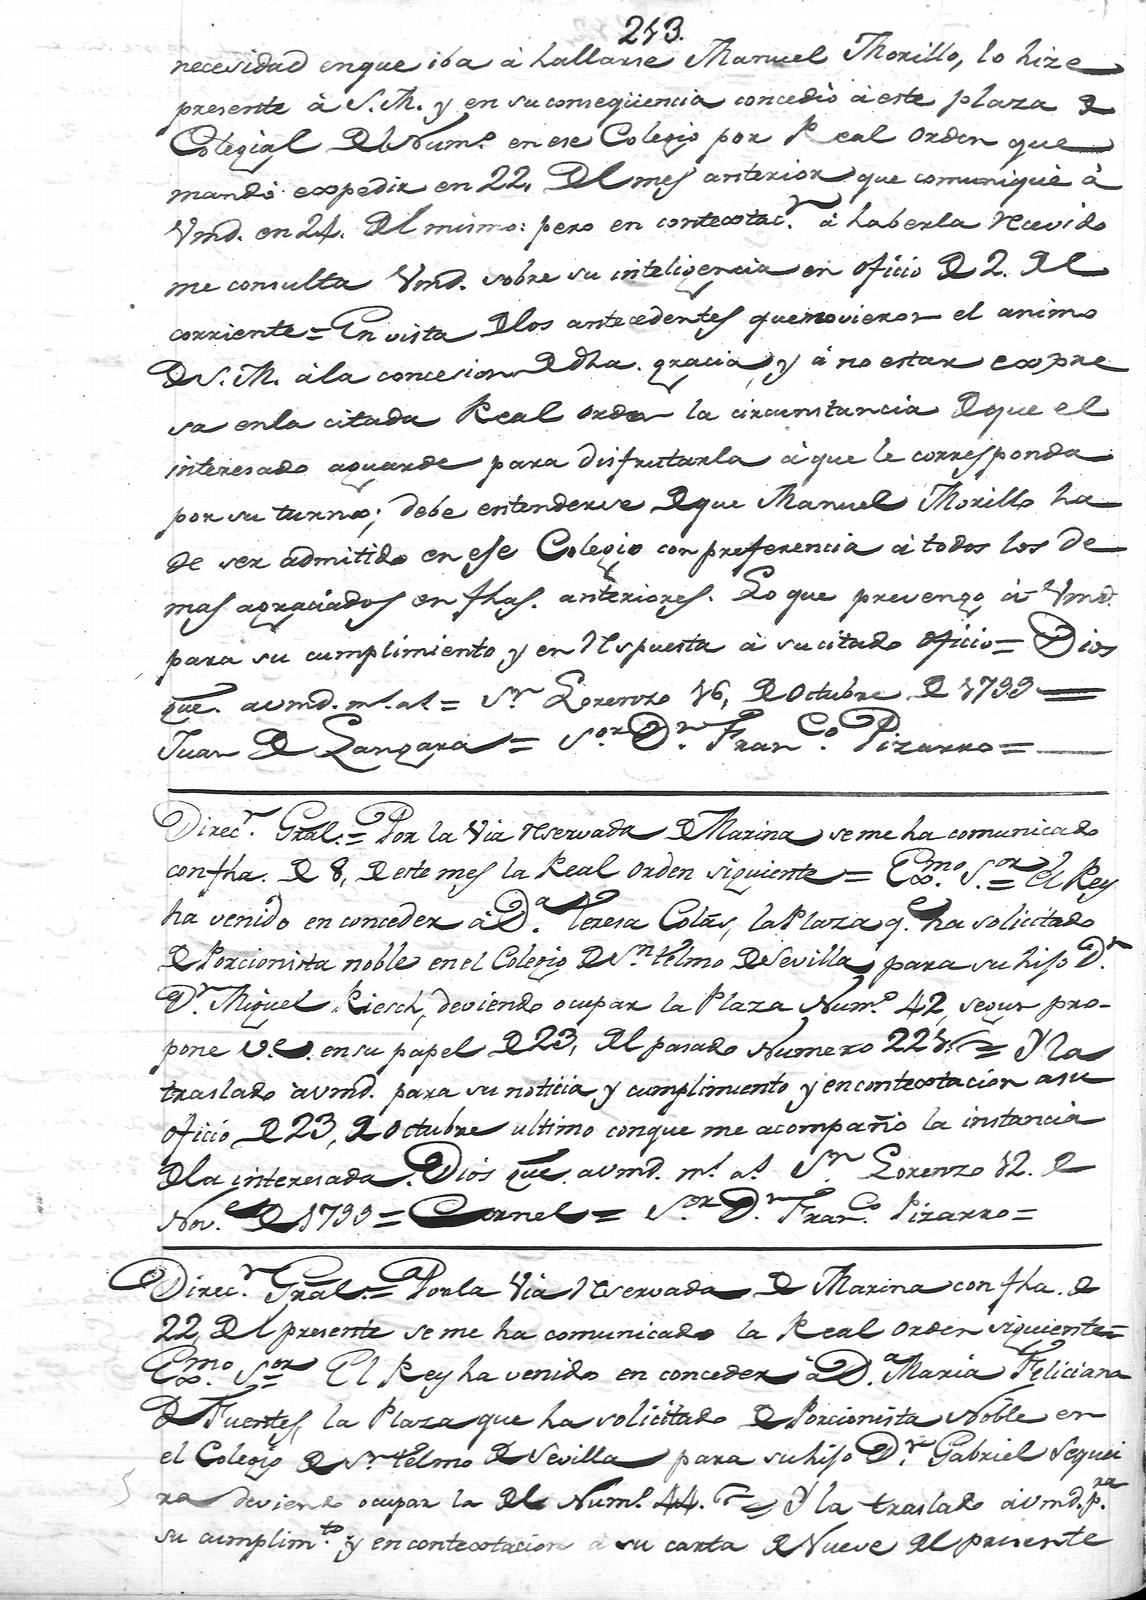 213.
necesidad enque iba à hallarse Manuel Morillo, lo hize
presente à S.M. y en su conseqüencia concedió à este plaza de
Colegial del Num.º en ese Colegio por Real orden que
mandó expedir en 22. del mes anterior que comuniqué à
Vmd. en 24. del mismo: pero en contextac.n à haberla recivido
me consulta Vmd. sobre su inteligencia en oficio de 2. del
corriente = En vista delos antecedentes que movieron el animo
de S.M. àla concesion de dha. gracia, y à no estar expre
sa enla citada Real orden la circunstancia de que el
interesado aguarde para disfrutarla à que le corresponda
por su turno; debe entenderse de que Manuel Morillo ha
de ser admitido en ese Colegio con preferencia à todos los de
mas agraciados en fhas. anteriores. Lo que prevengo à Vmd.
para su cumplimiento y en respuesta à su citado oficio = Dios
gue. avmd. m.s a.s = S.n Lorenzo 16, de Octubre de 1799 =
Juan de Langara = S.or D.n Fran.co Pizarro =
Direc.n Gral. = Por la Via reservada de Marina se me ha comunicado
con fha. de 8, de este mes la Real orden siguiente = Exmo. S.or = el Rey
ha venido en conceder à D.a Teresa Colás, la Plaza q.e ha solicitado
de Porcionista noble en el Colegio de S.n Telmo de Sevilla para su hijo D.n
D.n Miguel Riesch, deviendo ocupar la Plaza Num.º 42, segun pro-
pone V.e. en su papel de 23, del pasado Numero 221. = Y la
traslado àvmd. para su noticia y cumplimiento y en contextacion asu
oficio de 23, de Octubre ultimo conque me acompaño la instancia
dela interesada. Dios gue. avmd. m.s a.s S.n Lorenzo 12. de
Nov.e de 1799 = Cornel = S.or D.n Fran.co Pizarro =
Direc.n Gral. = Porla Via reservada de Marina con fha. de
22, del presente se me ha comunicado la Real orden siguiente =
Exmo. S.or El Rey ha venido en conceder à D.a Maria Feliciana
de Fuentes, la Plaza que ha solicitado de Porcionista Noble en
el Colegio de S.n Telmo de Sevilla para su hijo D.n Gabriel Sequei
ra deviendo ocupar la del Num.º 44. = Y la traslado àvmd. p.ra
su cumplim.to y en contextacion à su carta de Nueve del presente